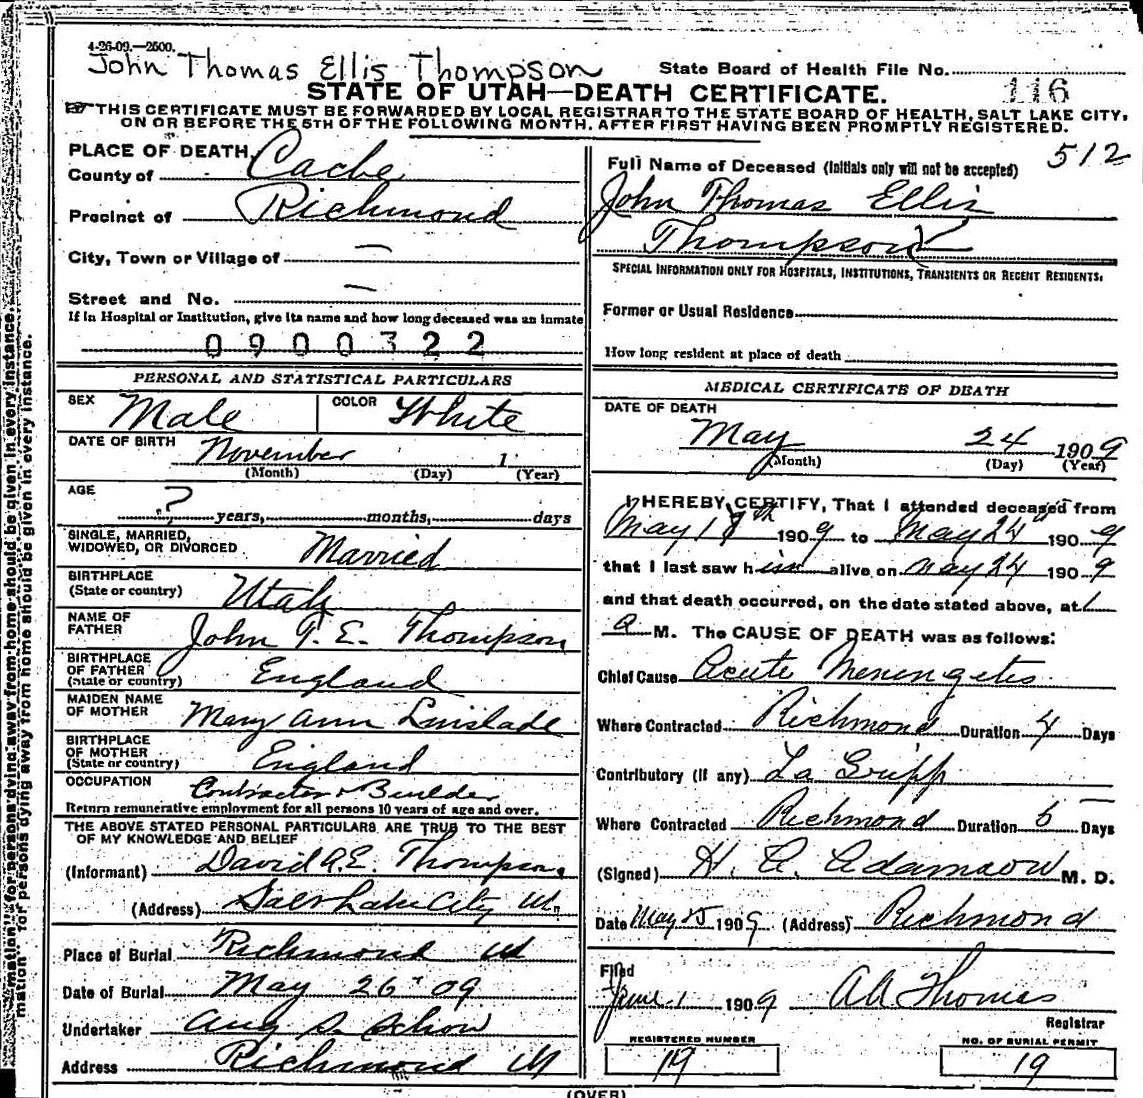 4-26-09.—2500.
John Thomas Ellis Thompson
State Board of Health File No. 116
STATE OF UTAH—DEATH CERTIFICATE.
THIS CERTIFICATE MUST BE FORWARDED BY LOCAL REGISTRAR TO THE STATE BOARD OF HEALTH, SALT LAKE CITY,
ON OR BEFORE THE 5TH OF THE FOLLOWING MONTH, AFTER FIRST HAVING BEEN PROMPTLY REGISTERED.
PLACE OF DEATH
County of Cache
Precinct of Richmond
City, Town or Village of —
Street and No. —
If in Hospital or Institution, give its name and how long deceased was an inmate
0900322
PERSONAL AND STATISTICAL PARTICULARS
SEX Male COLOR White
DATE OF BIRTH November 1
(Month) (Day) (Year)
AGE ? years, months, days
SINGLE, MARRIED,
WIDOWED, OR DIVORCED Married
BIRTHPLACE
(State or country) Utah
NAME OF
FATHER John T. E. Thompson
BIRTHPLACE
OF FATHER
(State or country) England
MAIDEN NAME
OF MOTHER Mary Ann Linslade
BIRTHPLACE
OF MOTHER
(State or country) England
OCCUPATION Contractor & Builder
Return remunerative employment for all persons 10 years of age and over.
THE ABOVE STATED PERSONAL PARTICULARS ARE TRUE TO THE BEST
OF MY KNOWLEDGE AND BELIEF
(Informant) David A. E. Thompson
(Address) Salt Lake City Ut.
Place of Burial Richmond Ut
Date of Burial May 26 09
Undertaker Aug S. Schow
Address Richmond Ut
512
Full Name of Deceased (Initials only will not be accepted)
John Thomas Ellis
Thompson
SPECIAL INFORMATION ONLY FOR HOSPITALS, INSTITUTIONS, TRANSIENTS OR RECENT RESIDENTS.
Former or Usual Residence
How long resident at place of death
MEDICAL CERTIFICATE OF DEATH
DATE OF DEATH
May 24 1909
(Month) (Day) (Year)
I HEREBY CERTIFY, That I attended deceased from
May 18th 1909 to May 24 1909
that I last saw him alive on May 24 1909
and that death occurred, on the date stated above, at 1
a M. The CAUSE OF DEATH was as follows:
Chief Cause Acute Menengetes
Where Contracted Richmond Duration 4 Days
Contributory (if any) La Gripp
Where Contracted Richmond Duration 6 Days
(Signed) H. A. Adamson M. D.
Date May 25 1909 (Address) Richmond
Filed
June 1 1909 A A Thomas
Registrar
REGISTERED NUMBER NO. OF BURIAL PERMIT
19 19
(OVER)
mation" for persons dying away from home should be given in every instance.